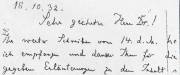 18.10.32.
Sehr geehrter Herr Dr.!
Ihr werter Schreiben vom 14. d. Mts. h
ich empfangen und danke Ihnen für die
gegebenen Erläuterungen zu den